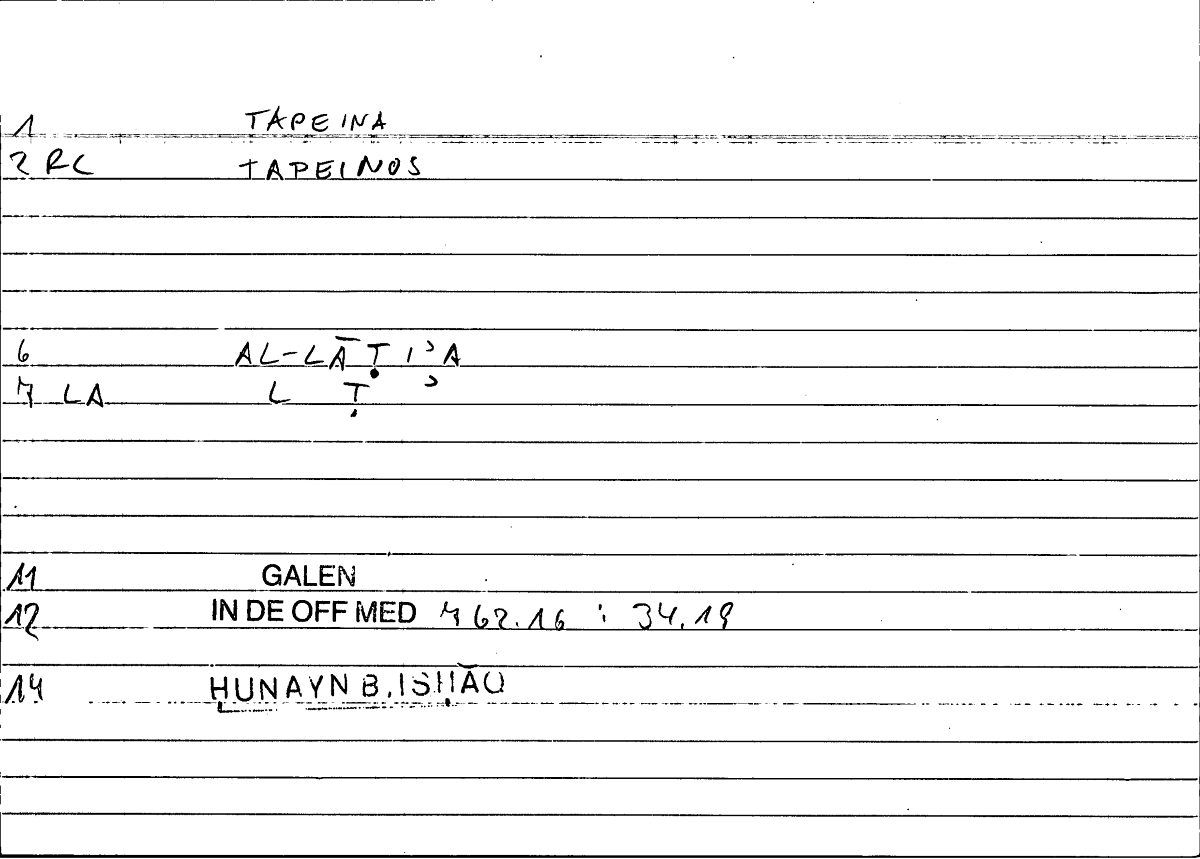 1 TAPEINA
2 RC TAPEINOS
6 AL-LĀṬIʾA
7 LA L Ṭ ʾ
11 GALEN
12 IN DE OFF MED 762.16 : 34.19
14 ḤUNAYN B. ISḤĀQ